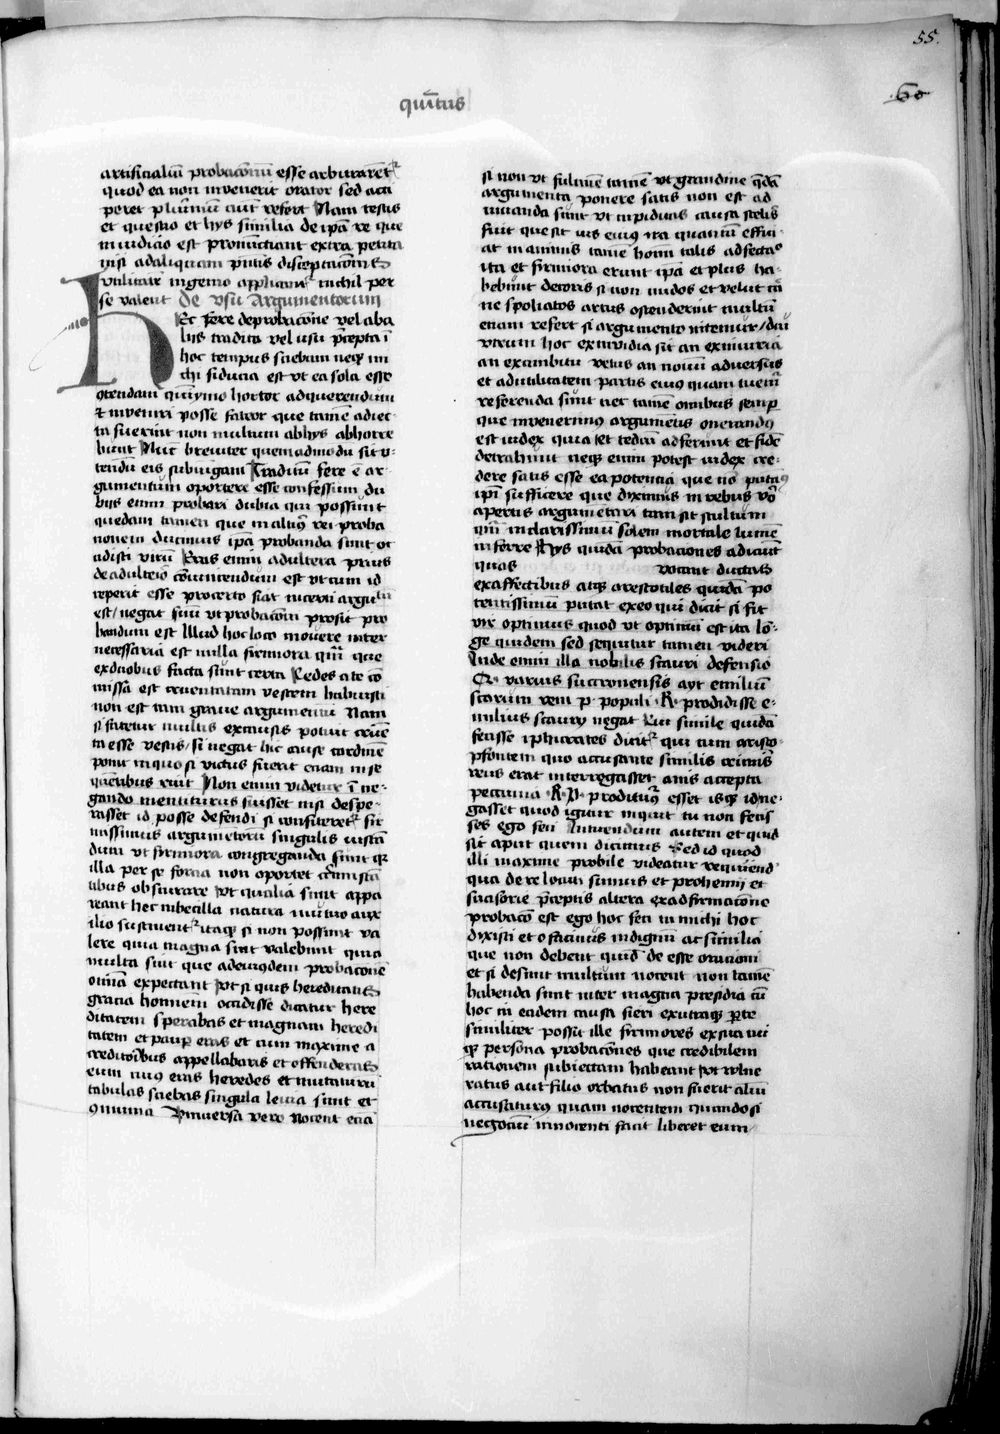 55.
60
quītus
artificialiū probacōnū esse arbitrarēt
quod ea non invenerit orator sed acci
peret plurimū aut̄ refert Nam testis
et questio et hys similia de ipa re que
in iudicio est pronūctiant extra petita
nisi ad aliquam pn̄tis disceptacōnis
utilitatē ingenio applicant̄ nichil per
se valent de usu Argumentorum
Hec fere de probacōne vel ab a
liis tradita vel usu p̄cepta ī
hoc tempus sciebam neq̄ mi
chi fiducia est ut ea sola esse
ostendam quīymo hortor ad querendum
et inveniri posse fateor que tamē adiec
ta fuerint non multum ab hys abhorre
bunt Nūc breviter quemadmodū sit u-
tendū eis subiūgam Traditū fere ē ar-
gumentum oportere esse confessum du
biis enim probari dubia qui possunt
quedam tamen que in alt̄ius rei proba
tionem ducimus ipā probanda sunt oc
cidisti virū Eras enim adultera prius
de adulterio cōvincendum est ut cum id
ceperit esse pro certo fiat incerti argum̄tū
est/ negat suū ut probacōni prosit pro
bandum est Illud hoc loco monere inter
necessaria est nulla firmiora q̄m que
ex duobus facta sunt certa Cedes a te cō
missa est cruentatam vestem habuisti
non est tam grave argumentū Nam
si fatetur multis ex causis potuit cruē
ta esse vestis/ si negat hic cause cardinē
ponit in quo si victus fuerit etiam in se
quētibus ruit Non enim videtur ī ne-
gando mentiturus fuisset nisi despe-
rasset id posse defendi si confiteret̄ fir
missimis argumentorū singulis instā
dum ut firmiora congreganda sunt q̄
illa per se forcia non oportet circūstā
tibus obscurare ut qualia sunt appa
reant hec imbecilla natura mutuo aux
ilio sustinent̄ itaq̄ si non possunt va
lere quia magna sint valebunt quia
multa sint que ad eiusdem probacōnē
omnia expectant ut si quis hereditatis
gracia hominem occidisse dicatur here
ditatem sperabas et magnam heredi
tatem et paup̄ eras et tum maxime a
creditoribus appellabaris et offenderas
eum cuius eras heredes et mutaturū
tabulas sciebas singula levia sunt et
cōmunia universa vero nocent etiā
si non ut fulmine tamē ut grandine q̄dā
argumenta ponere satis non est ad
iuvanda sunt ut cupiditas causa sceleris
fuit que sit vis eius ira quantū effici-
at in animis tamē homī talis adfectō
ita et firmiora erunt ipā et plus ha-
bebunt decoris si non nudos et velut cā
ne spoliatos artus ostenderint multū
etiam refert si argumento nitemur/ odii
utrum hoc ex invidia sit an ex iniuria
an ex ambitu vetus an novū adversus
et ad utilitatem partis eius quam tuem̄
referenda sunt nec tamē omnibus semp̄
que invenerimus argumētis onerandus
est iudex quia et tediū adferunt et fidē
detrahunt neq̄ enim potest iudex cre-
dere satis esse ea potentia que nō putam̄
ipī sufficere que diximus in rebus vō
apertis argumētari tam sit stultum
q̄m in clarissimū solem mortale lumē
inferre Hys quidā probaciones adiciūt
quas vocant ductas
ex affectibus atq̄ arestotiles quidā po
tentissimū putat ex eo qui dicit si fit
vir optimus quod ut optimū est ita lō-
ge quidem sed sequitur tamen videri
Inde enim illa nobilis scauri defensio
Q. varius sucronensis ayt emiliū
scarum rem p populi .R. prodidisse e-
milius scaurus negat Cui simile quidā
fecisse iphicrates dicit̄ qui cum aristo-
phōntem quo accusante similis criminis
reus erat interrogasset a nīs accepta
pecunia .R.P. proditur̄ esset is q̄ id ne-
gasset quod igitur inquit tu non feis
ses ego feci Intuendum autem et quid
sit aput quem dicimus Sed id quod
illi maxime probile videatur requirend̄
qua de re locuti sumus et prohemii et
suasorie p̄ceptis altera ex adfirmacōne
probacō est ego hoc feci tu michi hoc
dixisti et o facinus indignū ac similia
que non debent quid̄ de esse orationi
et si desint multum nocent non tamē
habenda sunt inter magna presidia cū
hoc in eadem causa fieri ex utraq̄ p̄te
similiter possit ille firmiores ex sua cui
q̄ persona probacōnes que credibilem
rationem subiectam habeant ut vulne
ratus aut filio orbatus non fuerit aliū
accusaturus quam nocentem quando si
negocium innocenti facit liberet eum